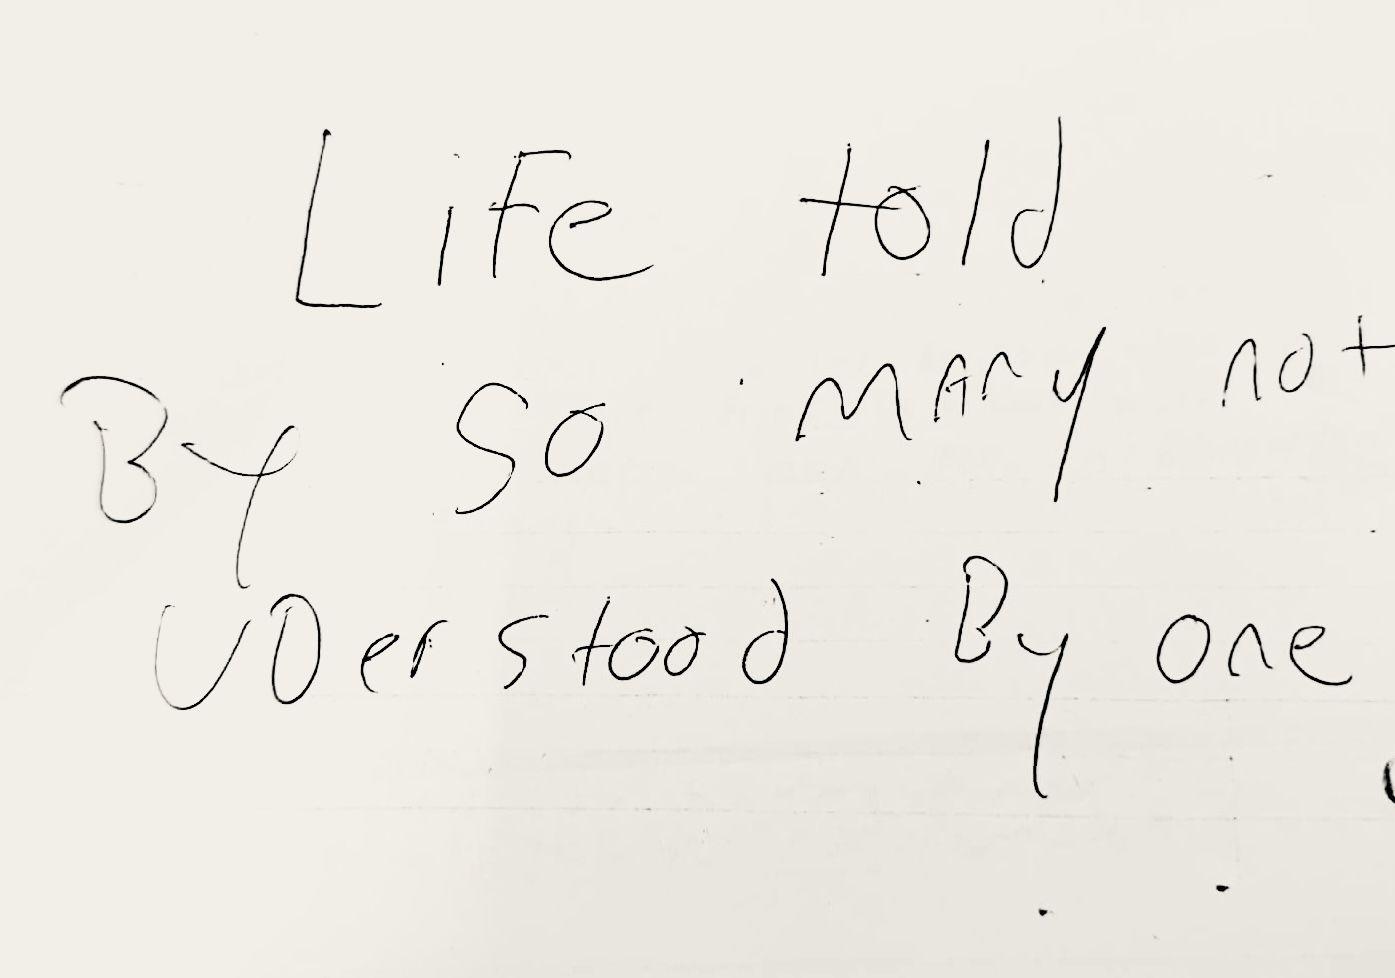 Life told
By so many not
UDerstood By one